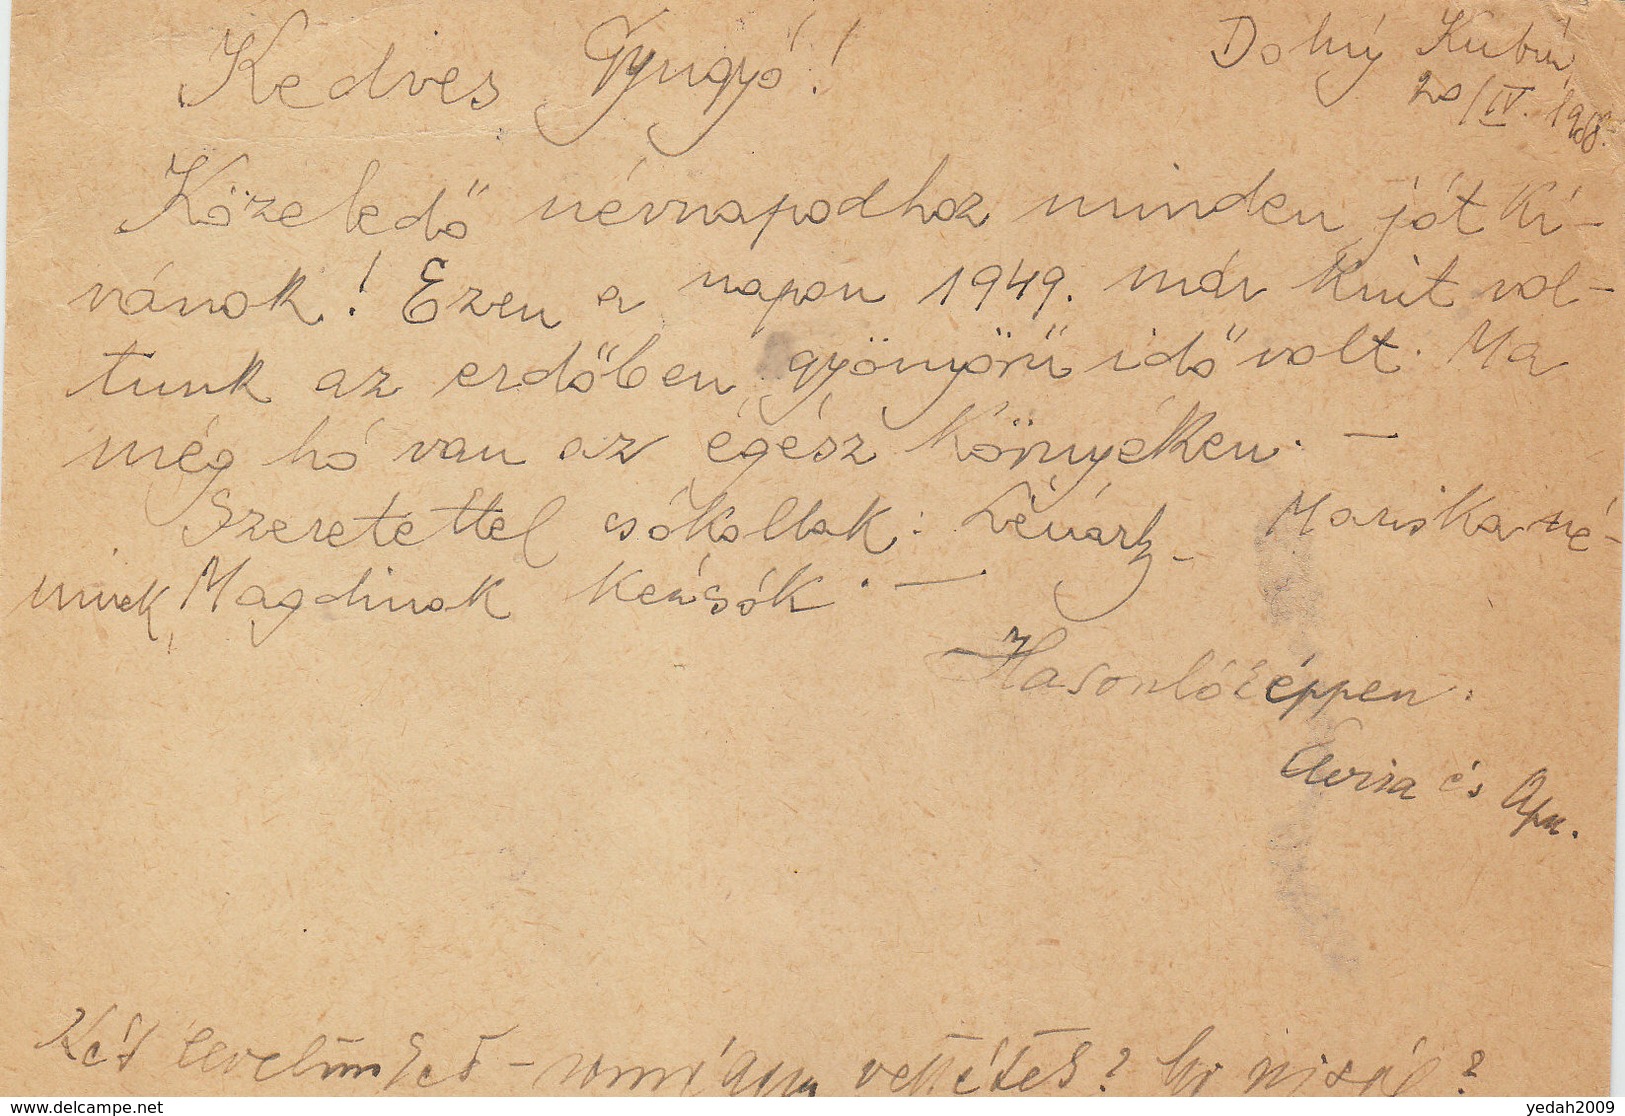 Dolný Kubín,
20/IV. 1958.
Kedves Gyugyó!
Közeledő névnapodhoz minden jót kí-
vánok! Ezen a napon 1949. már kint vol-
tunk az erdőben, gyönyörű idő volt. Ma
még hó van az egész környéken. —
Szeretettel csókollak: Mariska né-
ninek, Magdinak kézcsók. —
Hasonlóképpen:
és Apu.
Két levelünket – vettétek?
delcampe.net
yedah2009